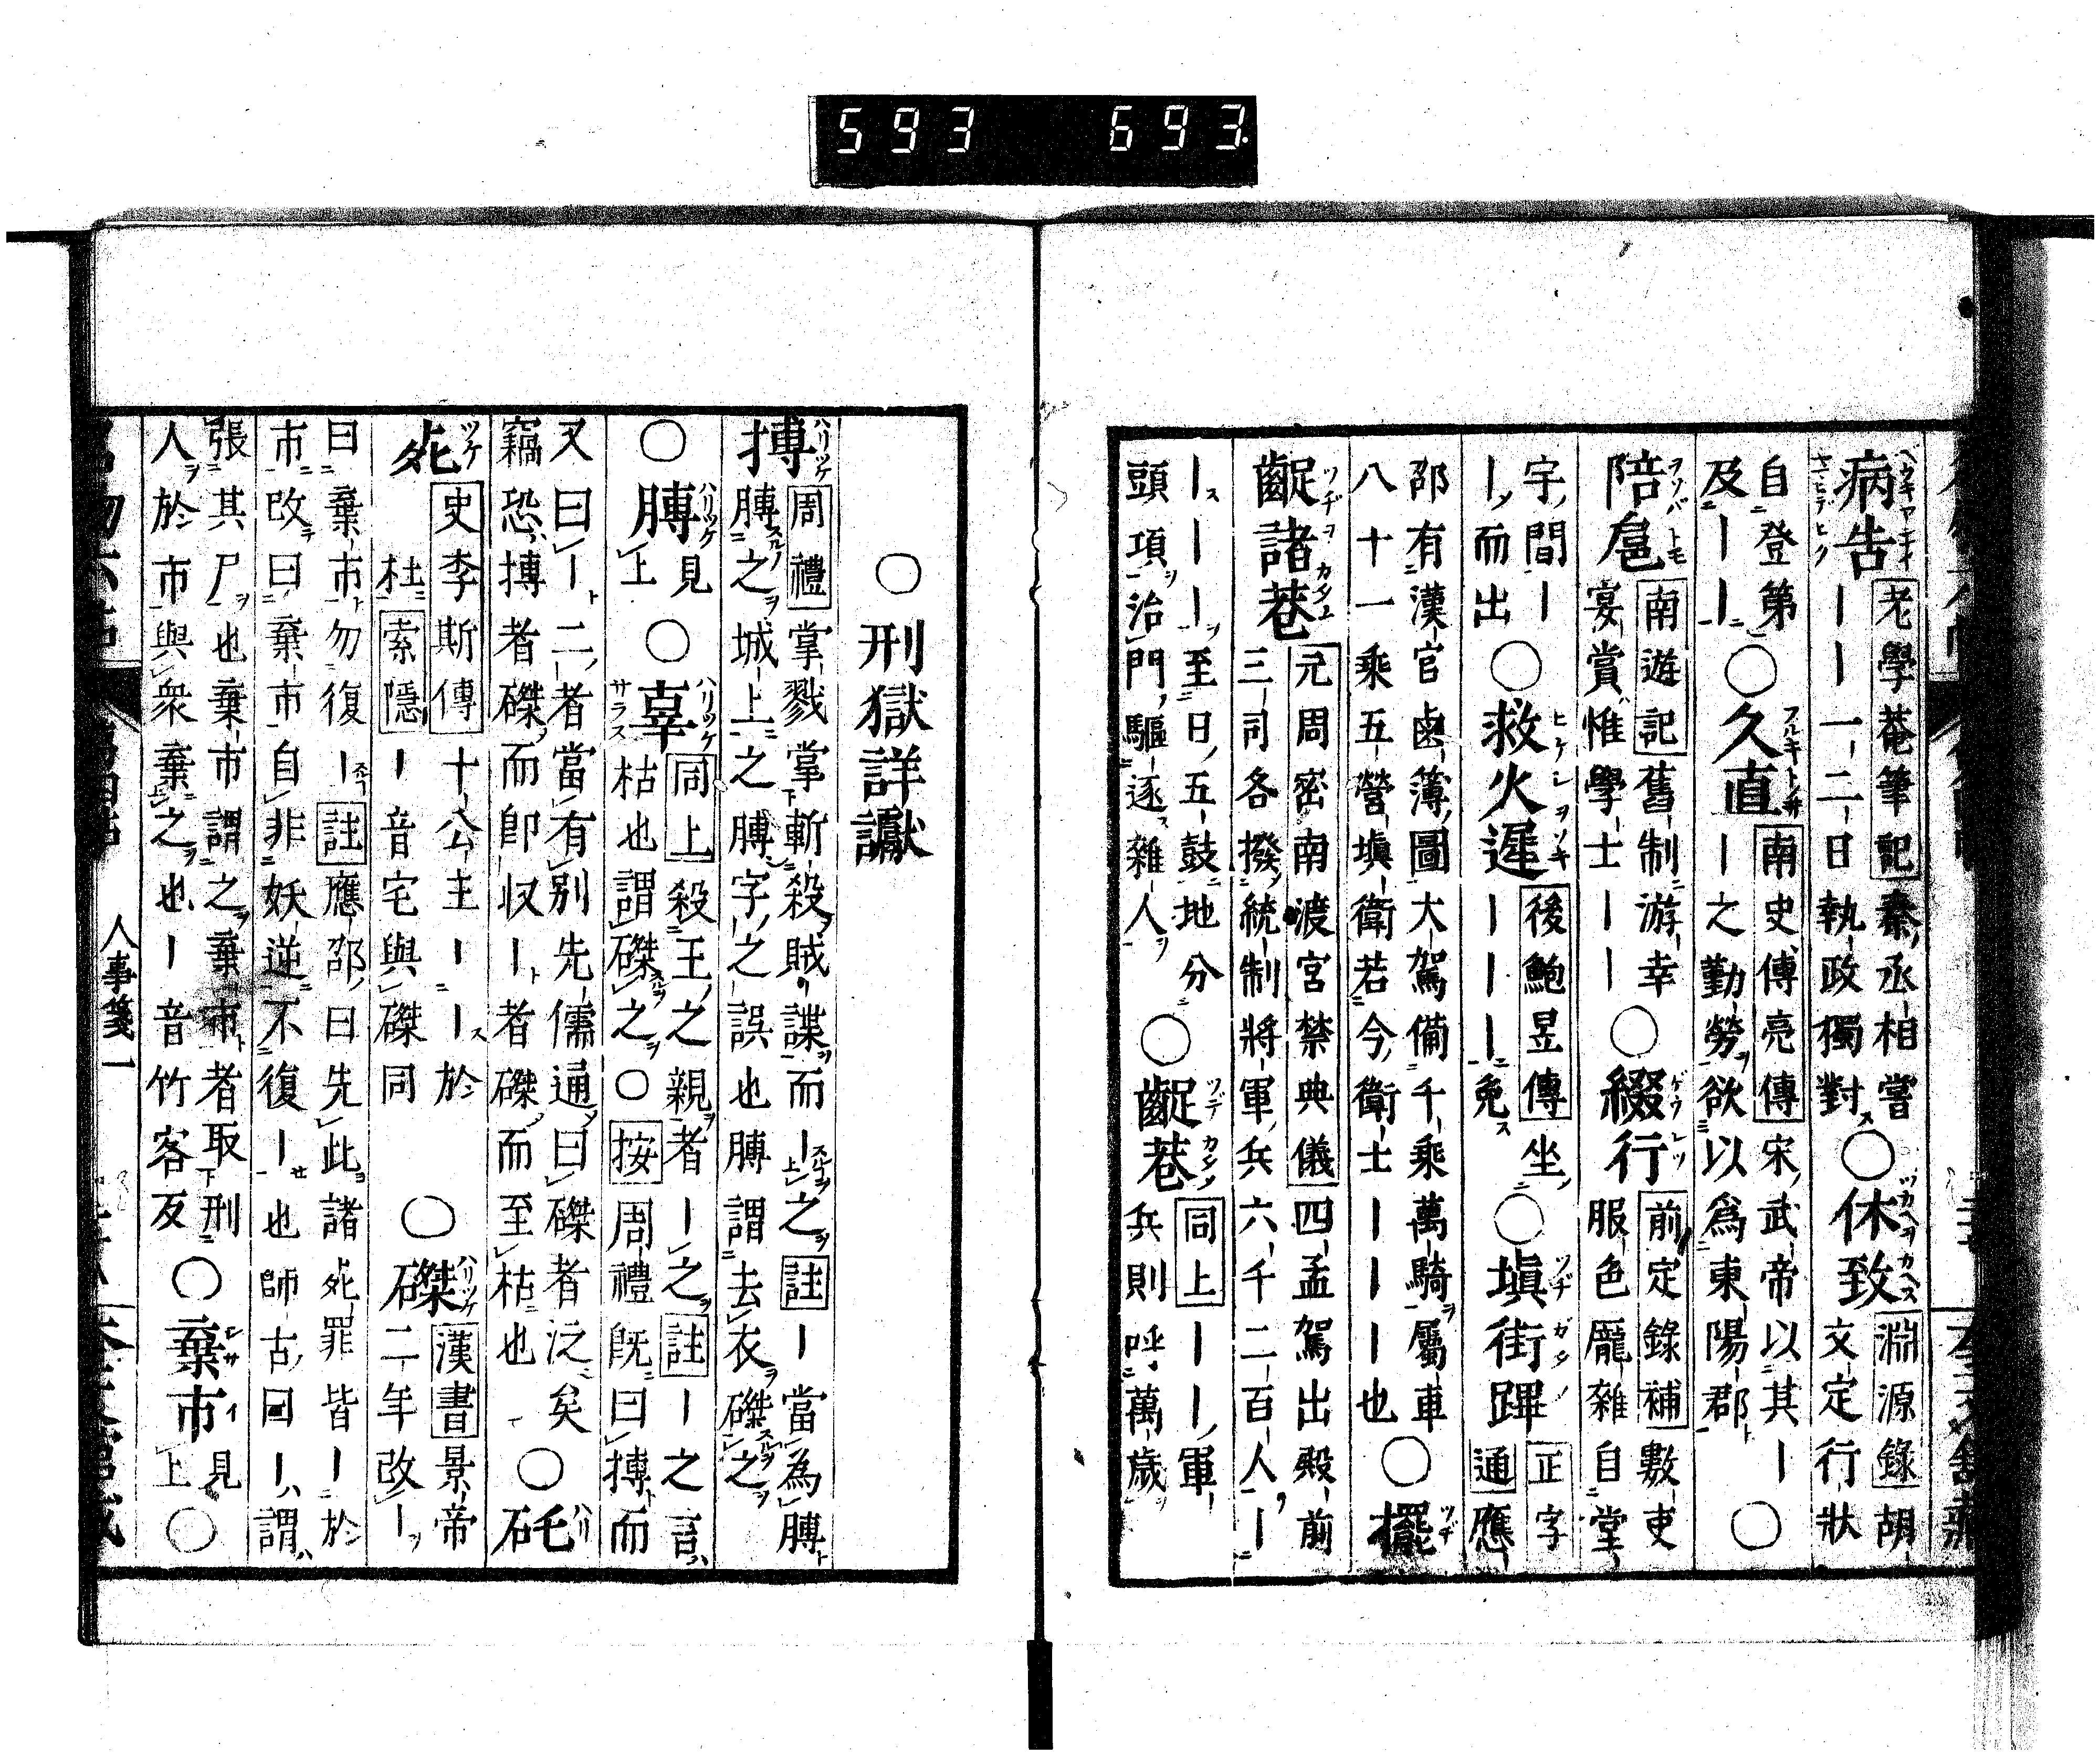 593 693
病告 老學菴筆記 秦丞相嘗
｜｜一二日執政獨對 ○休致 淵源錄 胡
文定行狀
自登第
及｜｜ ○久直 南史傅亮傳 宋武帝以其｜
｜之勤勞欲以爲東陽郡 ○
陪扈 南遊記 舊制游幸
宴賞惟學士｜｜ ○綴行 前定錄補 數吏
服色厖雜自堂
字間｜
｜而出 ○救火遲 後鮑昱傳 坐
｜｜｜免 ○塡街蹕 正字
通 應
邵有漢官鹵簿圖大駕備千乘萬騎屬車
八十一乘五營塡衛若今衛士｜｜｜也 ○擺
齪諸巷 元周密南渡宮禁典儀 四孟駕出殿前
三司各撥統制將軍兵六千二百人｜
｜｜｜至日五鼓地分
頭項治門驅逐雜人 ○齪巷 同上 ｜｜軍
兵則呼萬歲
○刑獄詳讞
搏 周禮 掌戮掌斬殺賊諜而｜之 註 ｜當為膊
膊之城上之膊字之誤也膊謂去衣磔之
○膊 見
上 ○辜 同上 殺王之親者｜之 註 ｜之言
枯也謂磔之 ○按 周禮既曰搏而
又曰｜二者當有別先儒通曰磔者泛矣
竊恐搏者磔而即収｜者磔而至枯也 ○矺
矺 史李斯傳 十公主｜｜於
杜 索隱 ｜音宅與磔同 ○磔 漢書 景帝
二年改｜
曰棄市勿復｜ 註 應邵曰先此諸死罪皆｜於
市改曰棄市自非妖逆不復｜也師古曰｜謂
張其尸也棄市謂之棄市者取刑
人於市與衆棄之也｜音竹客反 ○棄市 見
上 ○
人事箋一